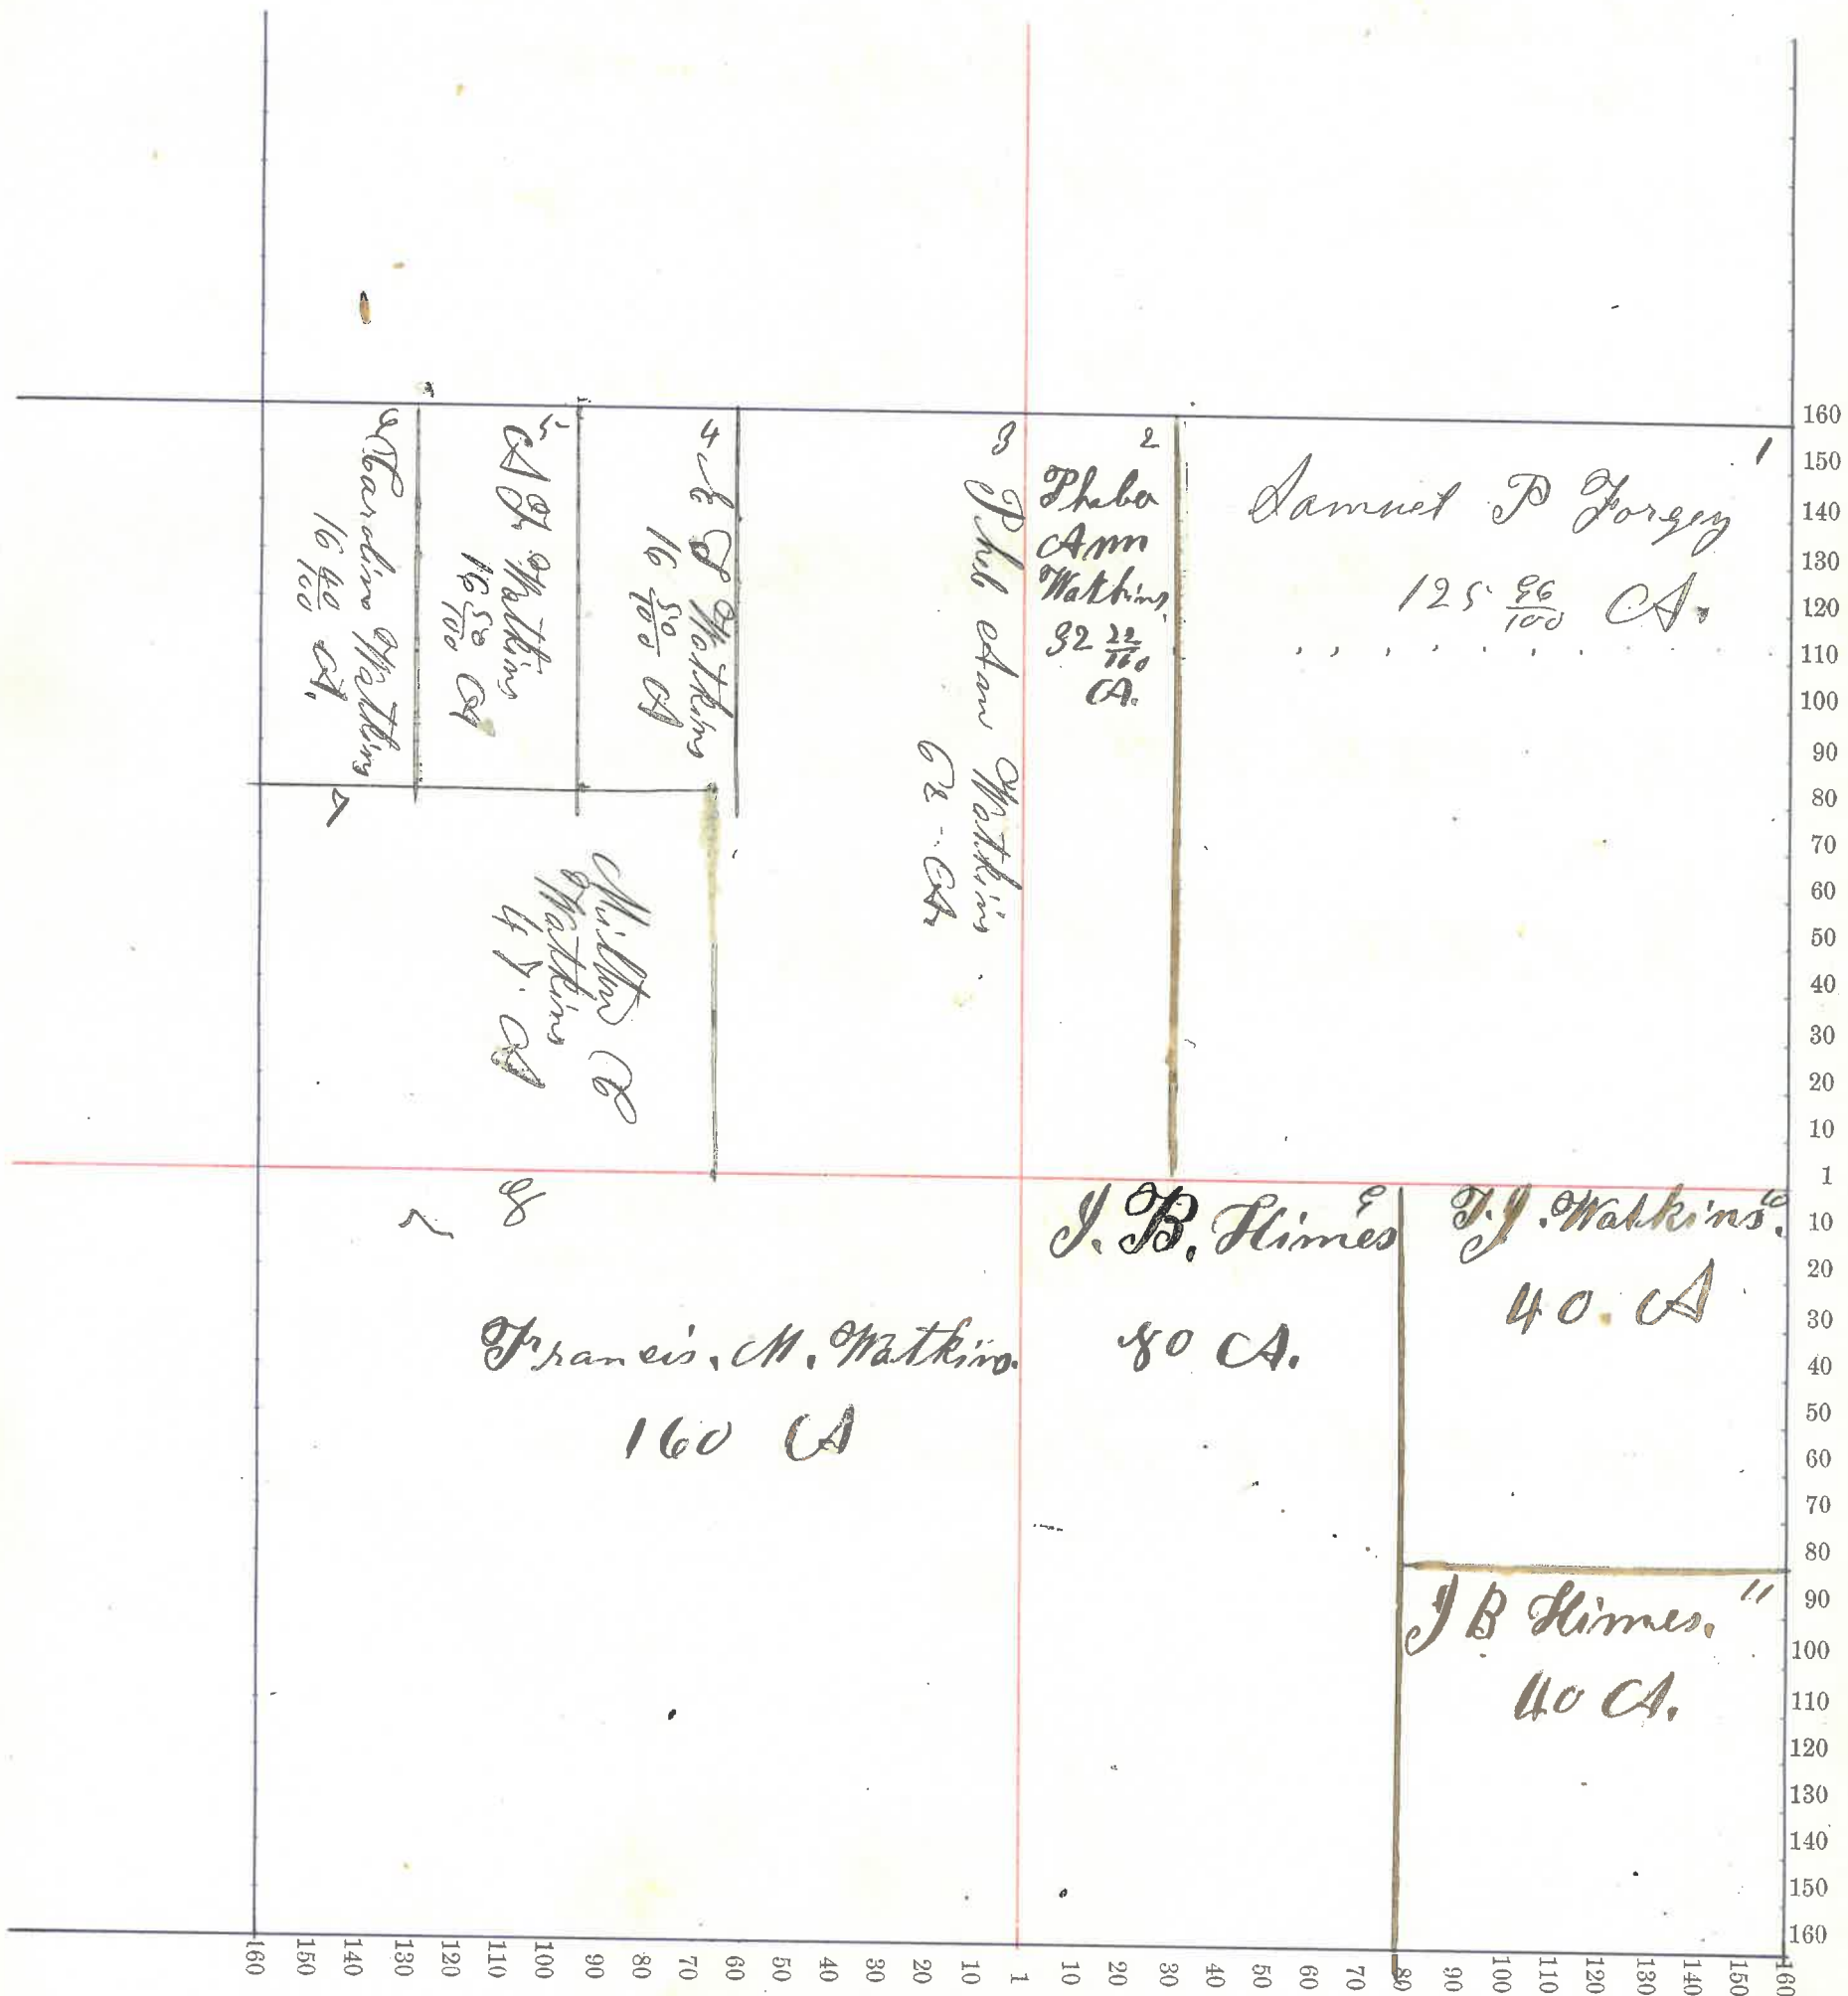 1
Samuel P Forgey
125 96/100 A.
2
Pheba
Ann
Watkins
32 22/160
A.
3
Pheb Ann Watkins
62 - A.
4
S Watkins
16 50/100 A
5
A J Watkins
16 50/100 A
6
Caroline Watkins
16 40/100 A.
7
Watkins
47. A
8
Francis. M. Watkins.
160 A
9
J. B. Himes
80 A.
10
T. J. Watkins.
40. A
11
J B Himes.
40 A.
160
150
140
130
120
110
100
90
80
70
60
50
40
30
20
10
1
10
20
30
40
50
60
70
80
90
100
110
120
130
140
150
160
160
150
140
130
120
110
100
90
80
70
60
50
40
30
20
10
1
10
20
30
40
50
60
70
80
90
100
110
120
130
140
150
160